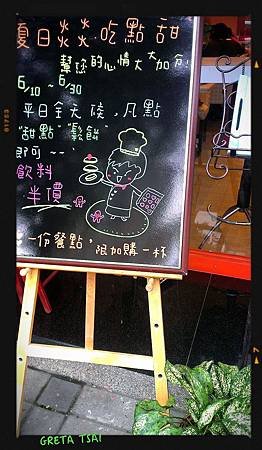 夏日炎炎吃點甜
幫您的心情大大加分!
6/10 ~ 6/30
平日全天候,凡點
"甜點""鬆餅"
即可~~
飲料
半價
一份餐點,限加購一杯
GRETA TSAI